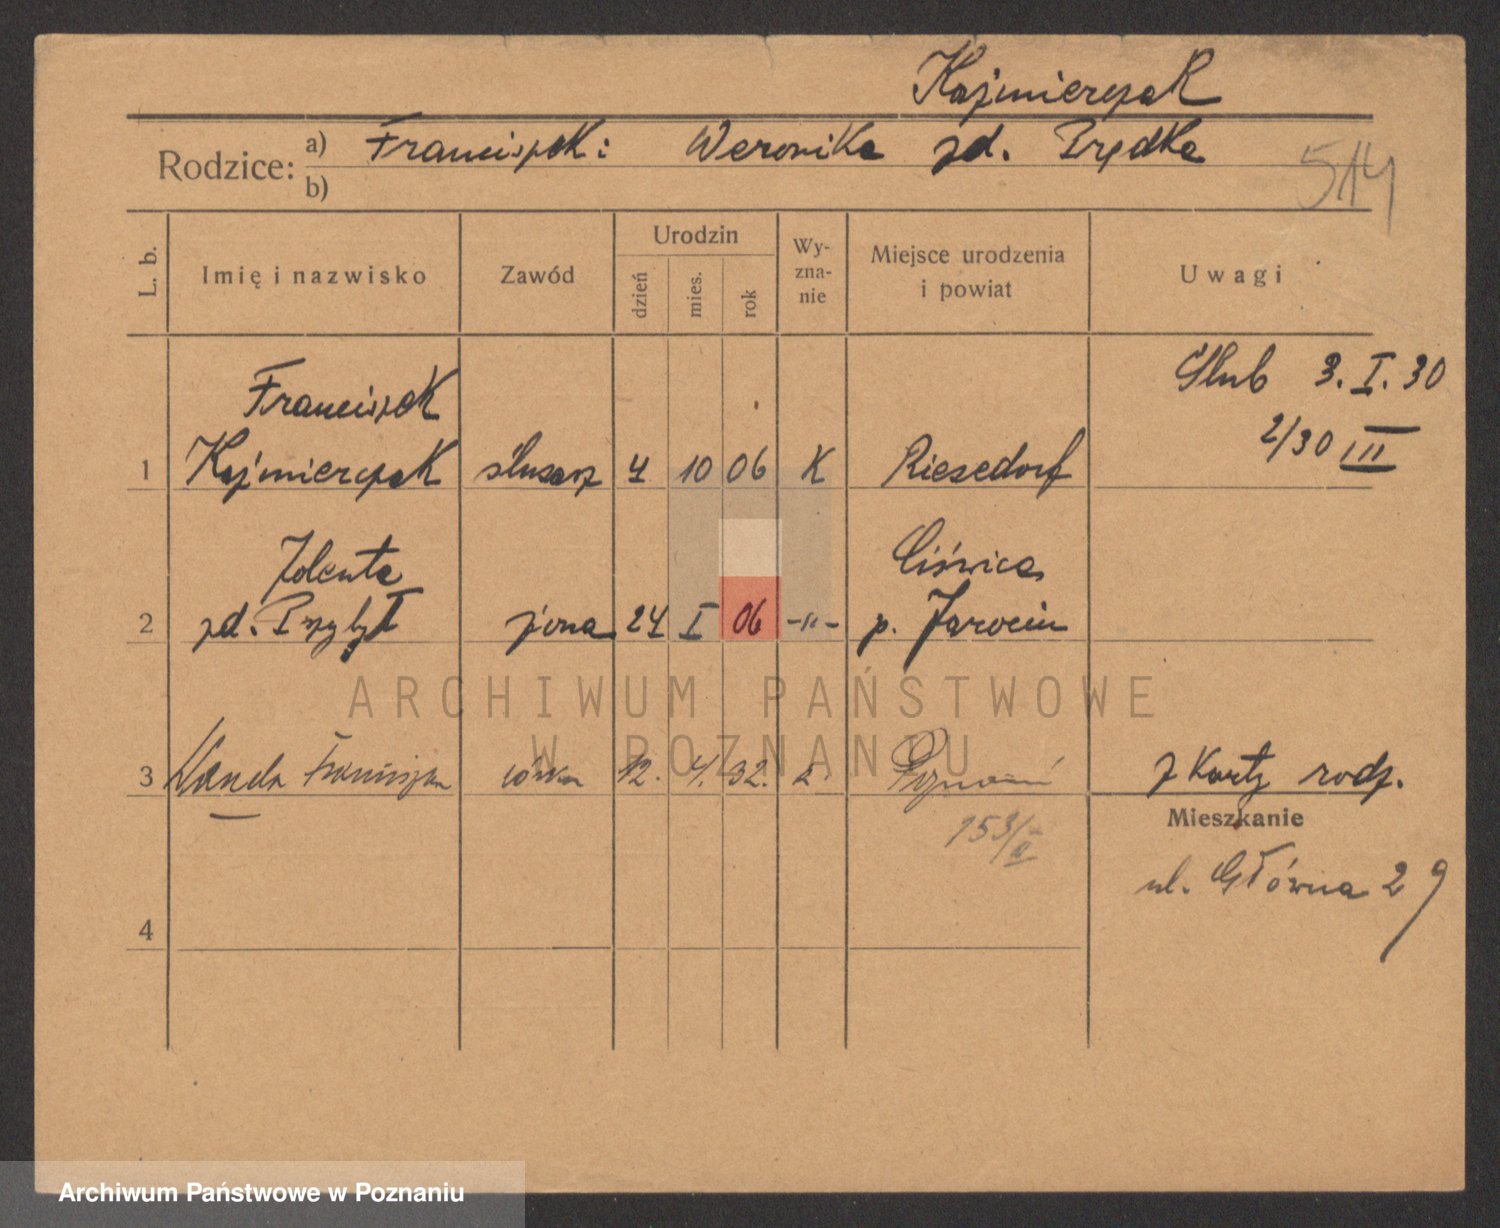 Kaźmierczak
Rodzice: a) Franciszek i Weronika zd. Prędka
b)
514
L. b. Imię i nazwisko Zawód Urodzin dzień mies. rok Wy-zna-nie Miejsce urodzenia i powiat Uwagi
Franciszek Ślub 3. I. 30
2/30 III
1 Kaźmierczak ślusarz 4 10 06 K Riesedorf
Jolenta Ciświca
2 zd. Przybył żona 24 I 06 -"- p. Jarocin
ARCHIWUM PAŃSTWOWE
W POZNANIU
3 Wanda Franciszka córka 12. 4. 32. Poznań z Karty rodz.
153/II
Mieszkanie
ul. Główna 29
4
Archiwum Państwowe w Poznaniu